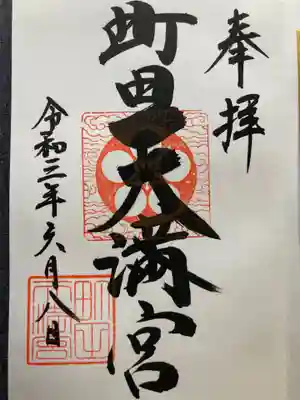 奉拝
町田天満宮
令和三年六月八日